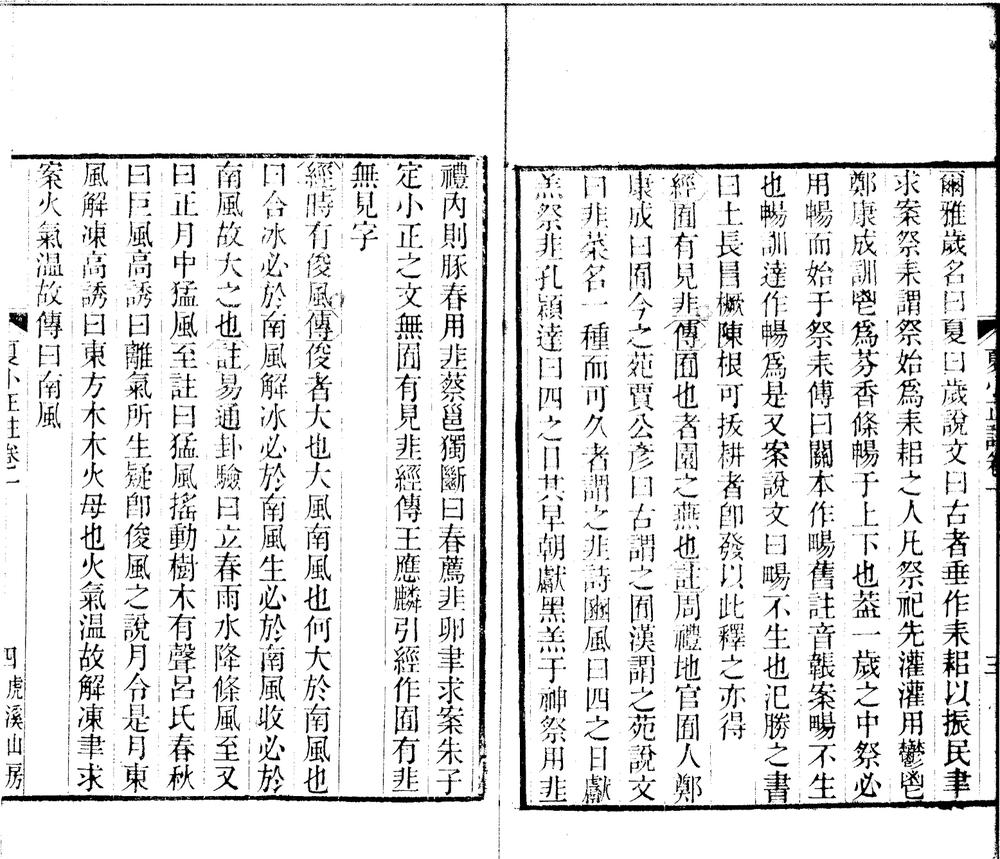 爾雅歲名曰夏曰歲說文曰古者垂作耒耜以振民聿
求案祭耒謂祭始爲耒耜之人凡祭祀先灌灌用鬱鬯
鄭康成訓鬯爲芬香條暢于上下也葢一歲之中祭必
用暢而始于祭耒傳曰闕本作畼舊註音䩨案畼不生
也暢訓達作暢爲是又案說文曰畼不生也氾勝之書
曰土長冒橛陳根可拔耕者卽發以此釋之亦得
經囿有見韭傳囿也者園之燕也註周禮地官囿人鄭
康成曰囿今之苑賈公彥曰古謂之囿漢謂之苑說文
曰韭菜名一種而可久者謂之韭詩豳風曰四之日獻
羔祭韭孔穎達曰四之日其早朝獻黑羔于神祭用韭
夏小正註卷一
三
禮內則豚春用韭蔡邕獨斷曰春薦韭卵聿求案朱子
定小正之文無囿有見韭經傳王應麟引經作囿有韭
無見字
經時有俊風傳俊者大也大風南風也何大於南風也
曰合冰必於南風解冰必於南風生必於南風收必於
南風故大之也註易通卦驗曰立春雨水降條風至又
曰正月中猛風至註曰猛風搖動樹木有聲呂氏春秋
曰巨風高誘曰離氣所生疑卽俊風之說月令是月東
風解凍高誘曰東方木木火母也火氣温故解凍聿求
案火氣温故傳曰南風
夏小正註卷一
四
虎溪山房